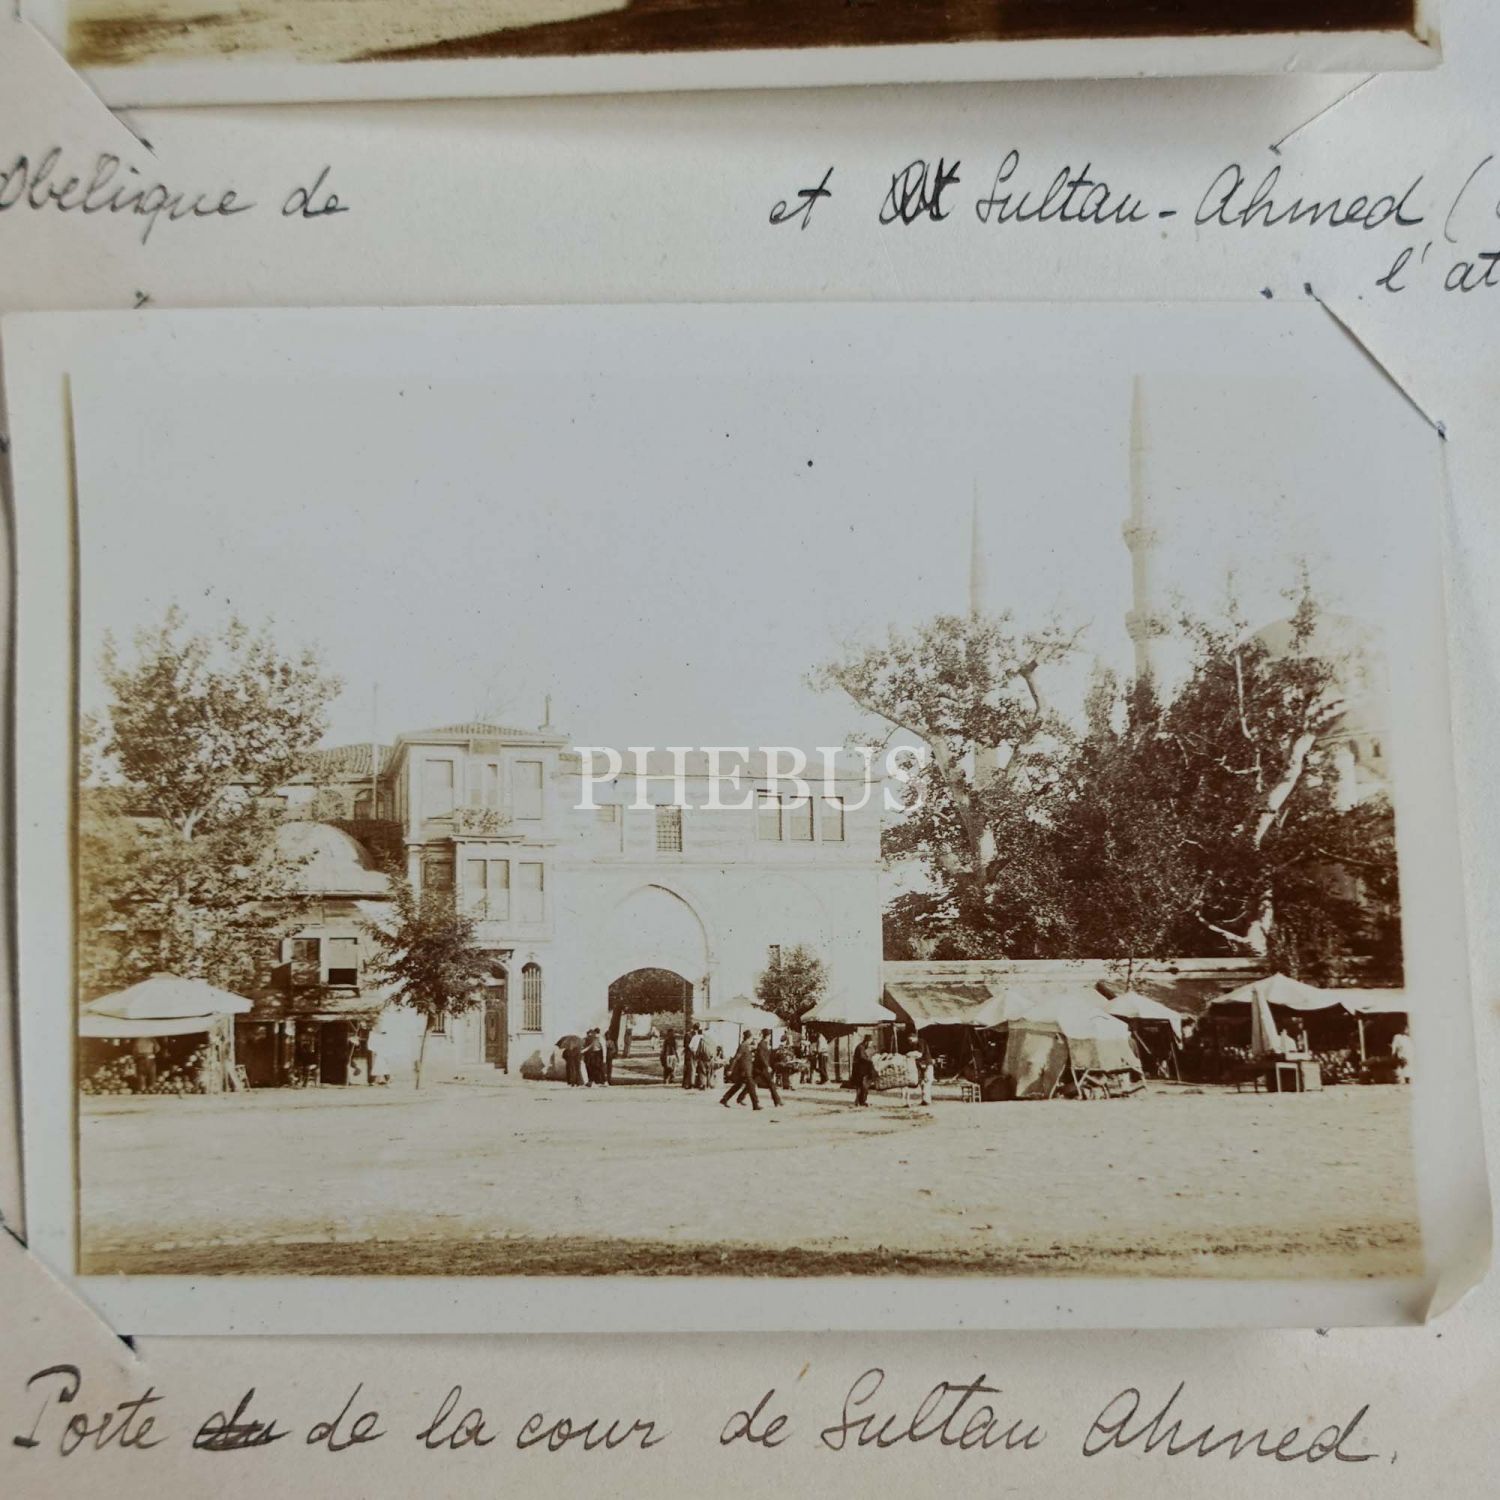 Obélisque de et Sultan-Ahmed (
l'at
PHEBUS
Porte de la cour de Sultan Ahmed.